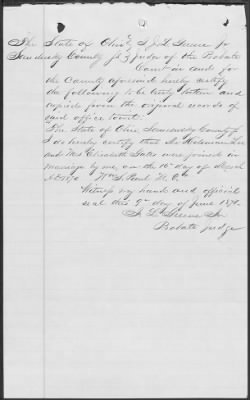 The State of Ohio } I J L Greene Jr
Sandusky County } Judge of the Probate
Court in and for
the County aforesaid hereby certify
the following to be truly taken and
copied from the original records of
said office to wit:
The State of Ohio Sandusky County
I do hereby certify that
and Mrs Elizabeth Gales were joined in
marriage by me, on the 10th day of March
AD 1870 Wm S. Paul
Witness my hand and official
seal this 9th day of June
J L Greene Jr
Probate Judge